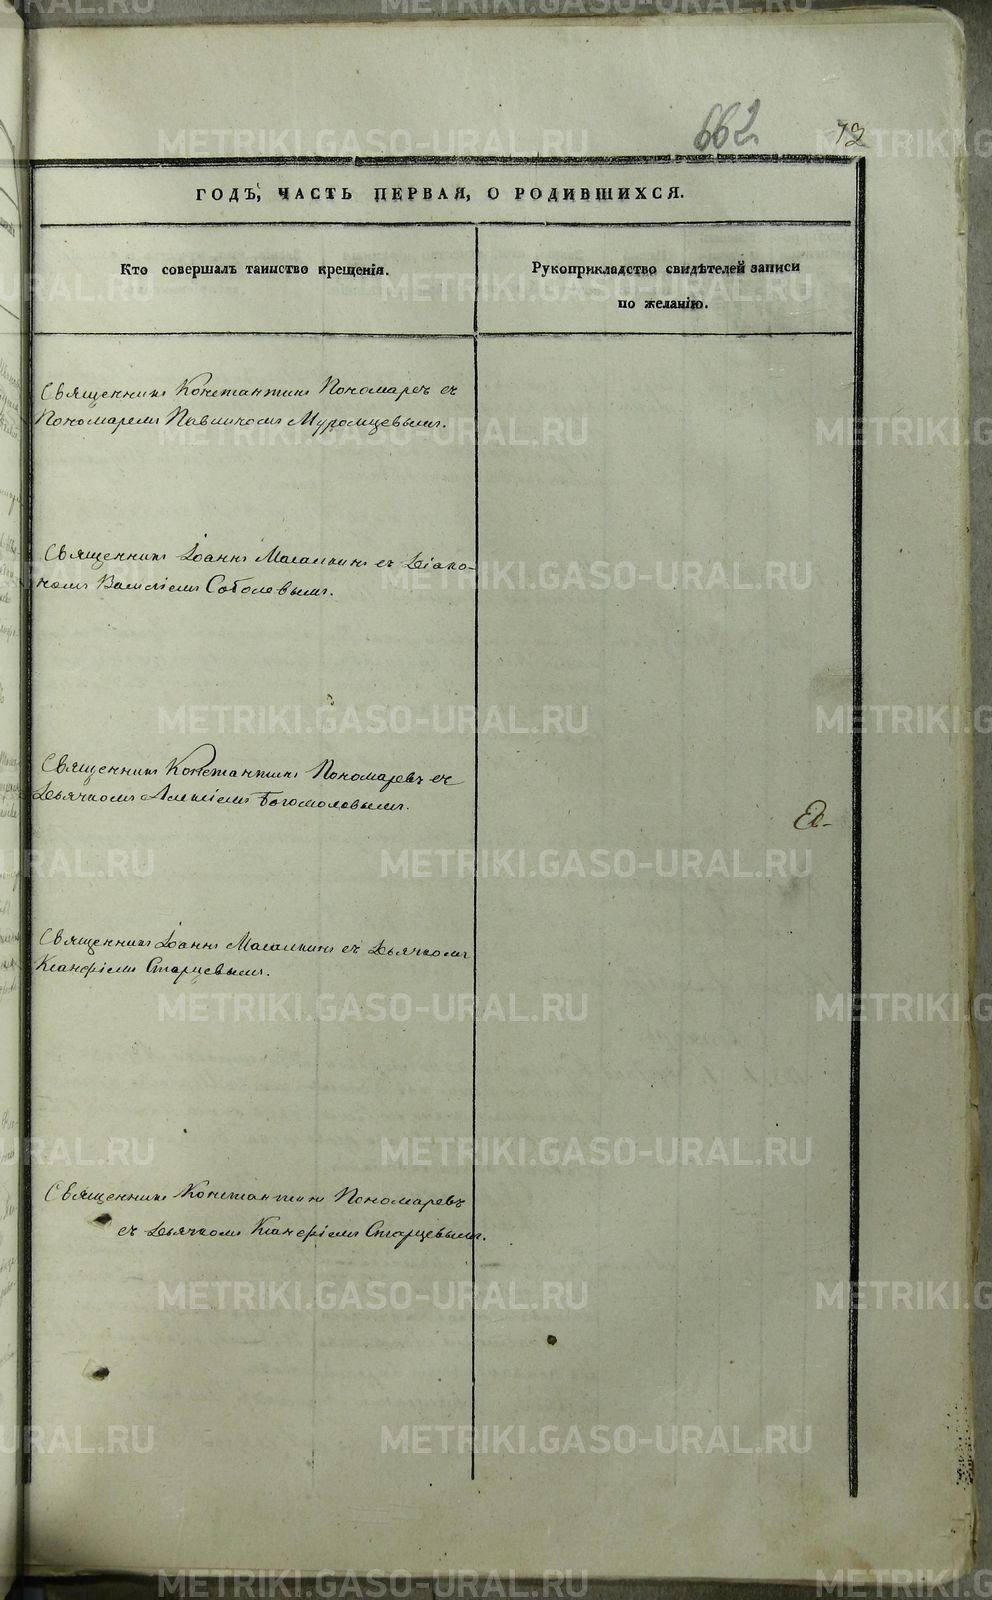 662
72
ГОДЪ, ЧАСТЬ ПЕРВАЯ, О РОДИВШИХСЯ.
Кто совершалъ таинство крещенія.
Рукоприкладство свидѣтелей записи
по желанію.
Священникъ Константинъ Пономаревъ съ
Пономаремъ Павликомъ Муромцевымъ.
Священникъ Іоаннъ съ Діако-
номъ Василіемъ Соболевымъ.
Священникъ Константинъ Пономаревъ съ
Дьячкомъ Алексіемъ Богомоловымъ.
Священникъ Іоаннъ съ Дьячкомъ
Ксанфіемъ Старцевымъ.
Священникъ Константинъ Пономаревъ
съ Дьячкомъ Ксанфіемъ Старцевымъ.
METRIKI.GASO-URAL.RU